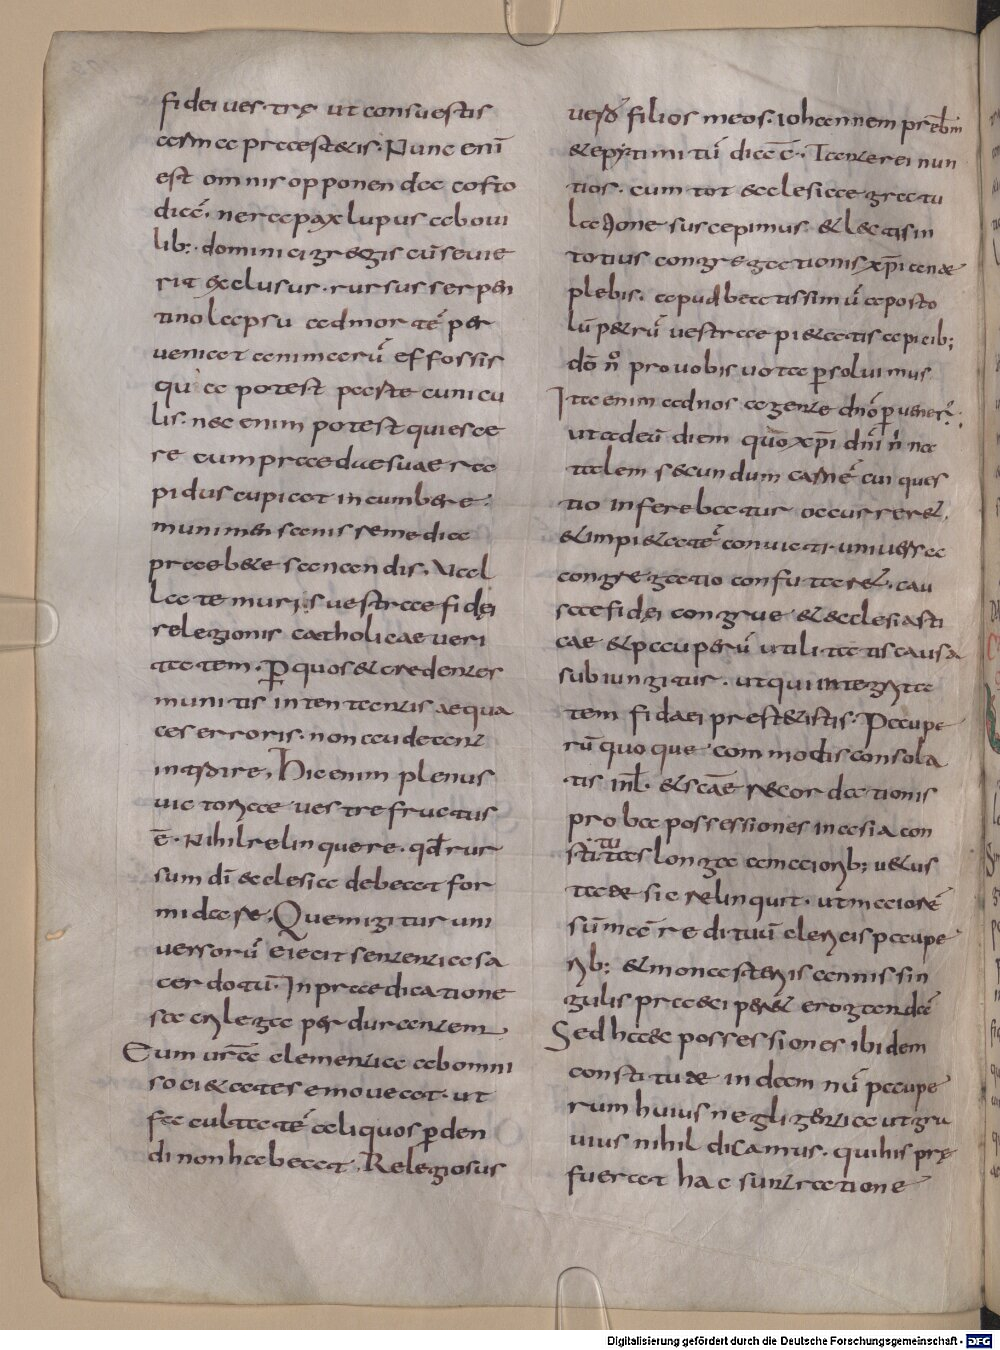 fidei uestrę ut consuestis
carnca praestetis. Nunc eni̅
est omnis opponenda cofto
dia̅e. ne rapax lupus ab oui
lib: dominici gregis cu̅ seuie
rit exclusur. rursus serpen
tino lapsu ad morte̅ per
ueniat animaru̅ effossis
qui a potest peste cunicu
lis. nec enim potest quiesce
re cum praeda e suae ra
pidus cupiat incumbere.
munimen scenis se media
praebere scencendis. Ual
late muris uestrae fidęi
relegionis catholicae ueri
tatem. Per quos et credentes
munitis intentantis aequa
ces erroris. non audeant
introire. Hic enim plenus
uictoriae uestre fructus
e̅. Nihil relinquere. qd rur
sum di̅ ecclesia debeat for
midare. Quem igitur uni
uersoru̅ eiecit sententia sa
cerdotu̅. In praedicatione
sacrilega perdurantem
Eum ur̅ae clementia ab omni
societates emoueat. ut
facultate̅ aliquos perden
di non habeat. Relegiosus
uero filios meos. iohannem prsbm
et epyrtimitu̅ diac̅. Itaner ei nun
tios. cum tot ecclesiae gratu
latione suscepimus. et lectis in
totius congregationis xp̅iane
plebis. apud beatissimu̅ aposto
lu̅ petru̅ uestrae pietatis apicib;
do̅ n̅o pro uobis uota persoluimus
Ita enim ad nos agente dn̅o peruener̅.
ut ad eu̅ diem quo xp̅i dn̅i n̅i na
talem secundum carne̅ cui ques
tio inferebatur occurreret.
et impietate̅ conuicti uniuersa
congregatio confutaret. cau
saefidęi congrue et ecclesiasti
cae et pauperu̅ utilitatis causa
subiungitur. ut qui integrita
tem fidaei prestetistis. Paupe
ru̅ quoque commodis consola
tis inl̅. et sc̅ae recordationis
proba possessiones in asia con
stitutas longa amaiorib; uetus
tate sic relinquit. ut maiore̅
su̅mae̅ redituu̅ clericis paupe
rib; et monasteriis annis sin
gulis praeciperet erogandae̅
Sed haec possessiones ibidem
constitutae in deem nu̅ paupe
rum huius neglegentia ut gra
uius nihil dicamus. qui his prę
fuerat hac surrectione
Digitalisierung gefördert durch die Deutsche Forschungsgemeinschaft - DFG